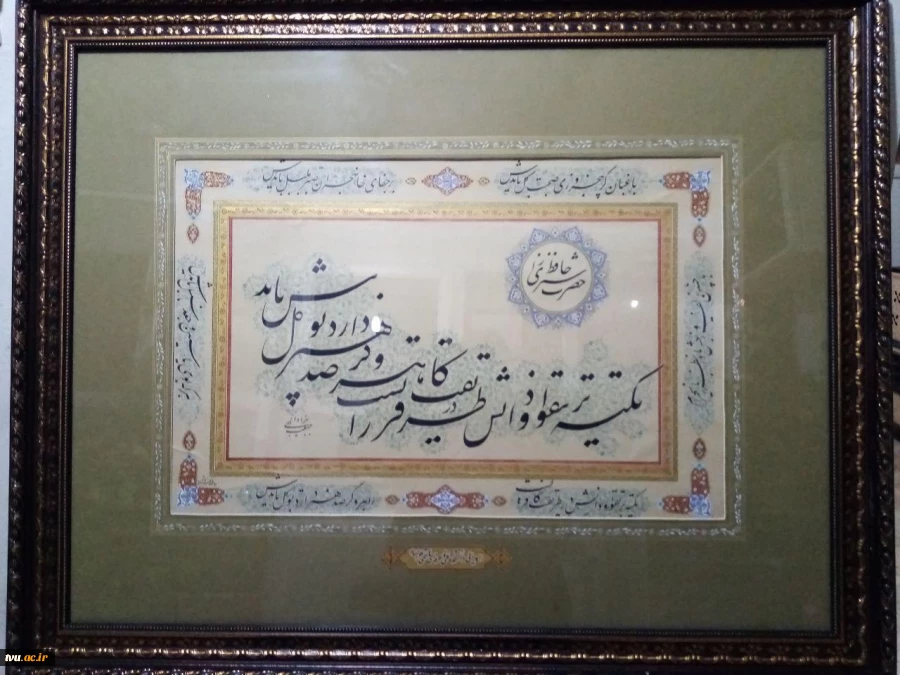 باغبان گر پنج روزی صحبت گل بایدش
بر جفای خار هجران صبر بلبل بایدش
حضرت حافظ شیرازی
تکیه بر تقوا و دانش در طریقت کافریست
راهرو گر صد هنر دارد توکل بایدش
با چنین زلف و رخش بادا نظر بازی حرام
هر که روی یاسمین و جعد سنبل بایدش
تکیه بر تقوا و دانش در طریقت کافریست
راهرو گر صد هنر دارد توکل بایدش
tvu.ac.ir